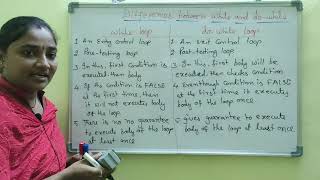 Difference between while and do-while
while loop
1 An Entry control loop
2 Pre-testing loop
3 In this, first Condition is executed then body
4 If the Condition is FALSE at the first time, then it will not execute body of the loop
5 There is no guarantee to execute body of the loop at least once
do while loop
1 An Exit Control loop
2 Post-testing loop
3 In this, first body will be executed then checks Condition
4 Eventhough Condition is FALSE at the first time it executes body of the loop once
5 gives guarantee to execute body of the loop at least once